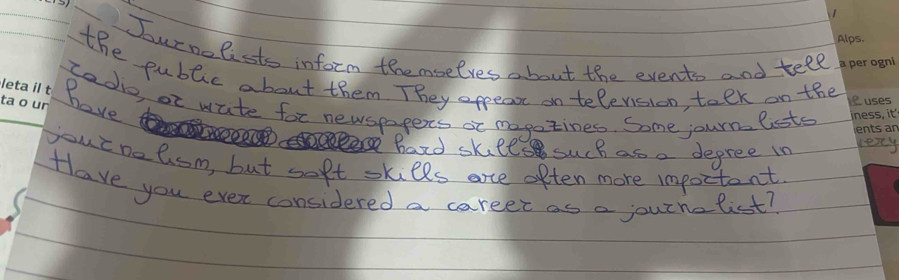 Journalists inform themselves about the events and tell
the public about them. They appear on television, talk on the
radio, or write for newspapers or magazines. Some journalists
have hard skills such as a degree in
journalism, but soft skills are often more important.
Have you ever considered a career as a journalist?
Alps.
a per ogni
leta il t
ta o un
uses
ness, it'
ents an